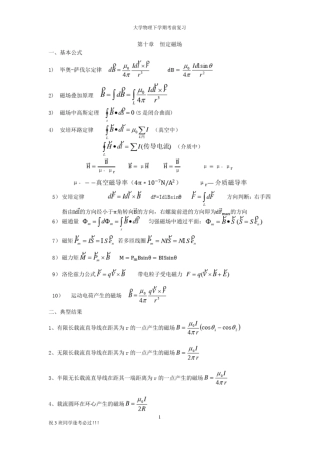 大学物理下学期考前复习
第十章 恒定磁场
一、基本公式
1) 毕奥-萨伐尔定律 dB⃗ = μ₀/4π · Idl⃗×r⃗/r³ dB = μ₀/4π · Idl sinθ/r²
2) 磁场叠加原理 B⃗ = ∫_L dB⃗ = μ₀/4π ∫_L Idl⃗×r⃗/r³
3) 磁场中高斯定理 ∮_s B⃗•dS⃗ = 0 (S 是闭合曲面)
4) 安培环路定律 ∮_L B⃗•dl⃗ = μ₀ΣI (真空中)
∮_L H⃗•dl⃗ = ΣI(传导电流) (介质中)
μ₀---真空磁导率(4π×10⁻⁷N/A²) μᵣ—介质磁导率
5) 安培定律 F⃗ = ∫_L Idl⃗×B⃗ dF=IdlBsinθ 方向判断:右手四
6) 磁通量 Φₘ = ∫dΦₘ = ∫_s B⃗•dS⃗ 匀强磁场中通过平面: Φₘ = B⃗•S⃗ (S⃗ = Se⃗ₙ)
7) 磁矩 P⃗ₘ = IS⃗ = ISe⃗ₙ 若多匝线圈 P⃗ₘ = NIS⃗ = NISe⃗ₙ
8) 磁力矩 M⃗ = P⃗ₘ×B⃗ M=PₘBsinθ=BISsinθ
9) 洛伦兹力公式 F⃗ = qV⃗×B⃗ 带电粒子受电磁力 F⃗ = q(V⃗×B⃗+E⃗)
10) 运动电荷产生的磁场 B⃗ = μ₀/4π · qV⃗×r⃗/r³
二、典型结果
1、有限长载流直导线在距其为 r 的一点产生的磁场 B = μ₀I/4πr (cosθ₁ − cosθ₂)
2、无限长载流直导线在距其为 r 的一点产生的磁场 B = μ₀I/2πr
3、半无限长载流直导线在距其一端距离为 r 的一点产生的磁场 B = μ₀I/4πr
4、载流圆环在环心产生的磁场 B = μ₀I/2R
1
祝 5 班同学逢考必过!!!